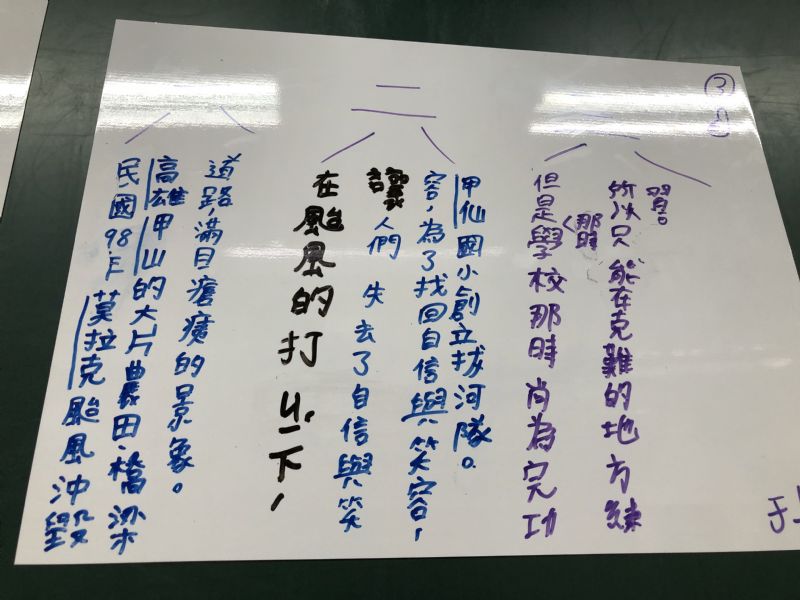 ③
二
民國98年莫拉克颱風沖毀
高雄甲山的大片農田、橋梁
道路,滿目瘡癀的景象。
在颱風的打ㄐㄧˊ下,
讓人們失去了自信與笑
容,為了找回自信與笑容,
甲仙國小創立拔河隊。
但是學校那時尚為完功
那時
所以只能在克難的地方練
習。